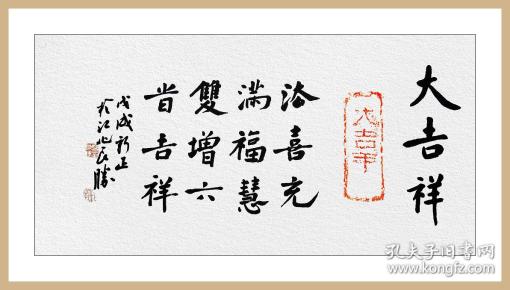 大吉祥
法喜充
满福慧
雙增六
首吉祥
戊戌新正
於江北長勝
孔夫子旧书网
www.kongfz.com